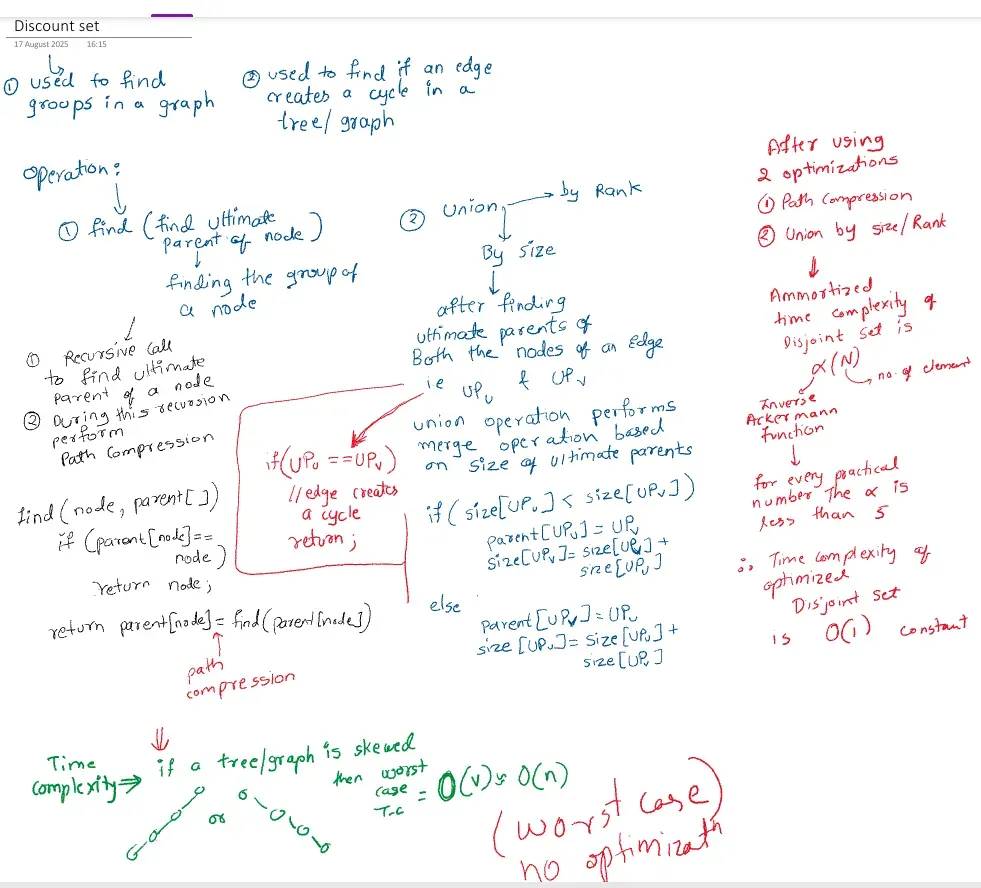 Discount set
17 August 2025 16:15
① used to find
groups in a graph
② used to find if an edge
creates a cycle in a
tree/ graph
Operation:
① find (find ultimate
parent of node)
finding the group of
a node
① Recursive call
to find ultimate
parent of a node
② During this recursion
perform
Path Compression
find(node, parent[])
if (parent[node]==
node)
return node;
return parent[node]=find(parent[node])
path
compression
② Union
by Rank
By size
after finding
ultimate parents of
Both the nodes of an edge
ie UPu & UPv
union operation performs
merge operation based
on size of ultimate parents
if(UPu ==UPv)
//edge creates
a cycle
return;
if(size[UPu] < size[UPv])
parent[UPu] = UPv
size[UPv]= size[UPv]+
size[UPu]
else
parent[UPv]=UPu
size[UPu]= size[UPu]+
size[UPv]
After using
2 optimizations
① Path compression
② Union by size/Rank
Ammortized
time complexity of
Disjoint set is
α(N)
no. of element
Inverse
Ackermann
function
for every practical
number The α is
less than 5
∴ Time complexity of
optimized
Disjoint set
is O(1) constant
Time
complexity⇒
if a tree/graph is skewed
then worst
case
T-C
= O(V) ≈ O(n)
or
(worst case)
no optimizatn